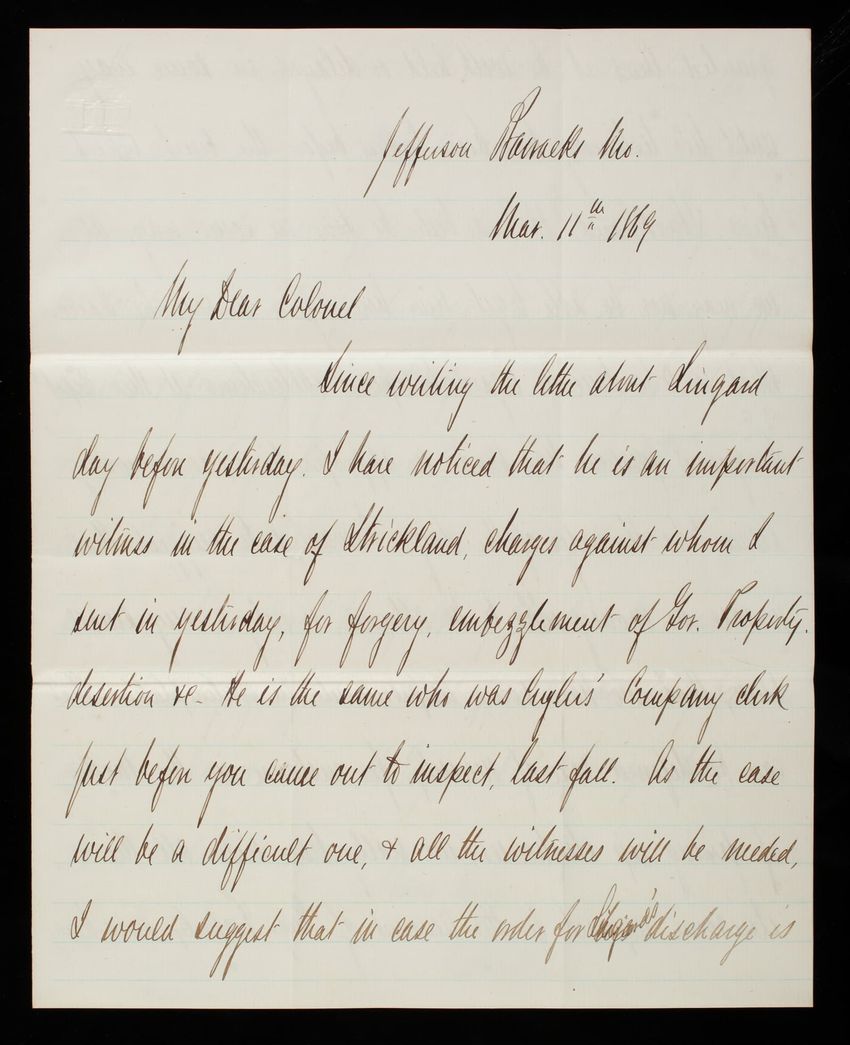 Jefferson Barracks Mo.
Mar. 11th 1869
My Dear Colonel
Since writing the letter about Lingard
day before yesterday. I have noticed that he is an important
witness in the case of Strickland, charges against whom I
sent in yesterday, for forgery, embezzlement of Gov. Property.
desertion &c - He is the same who was Company clerk
just before you came out to inspect, last fall. As the case
will be a difficult one, & all the witnesses will be needed,
I would suggest that in case the order for Lingard's discharge is